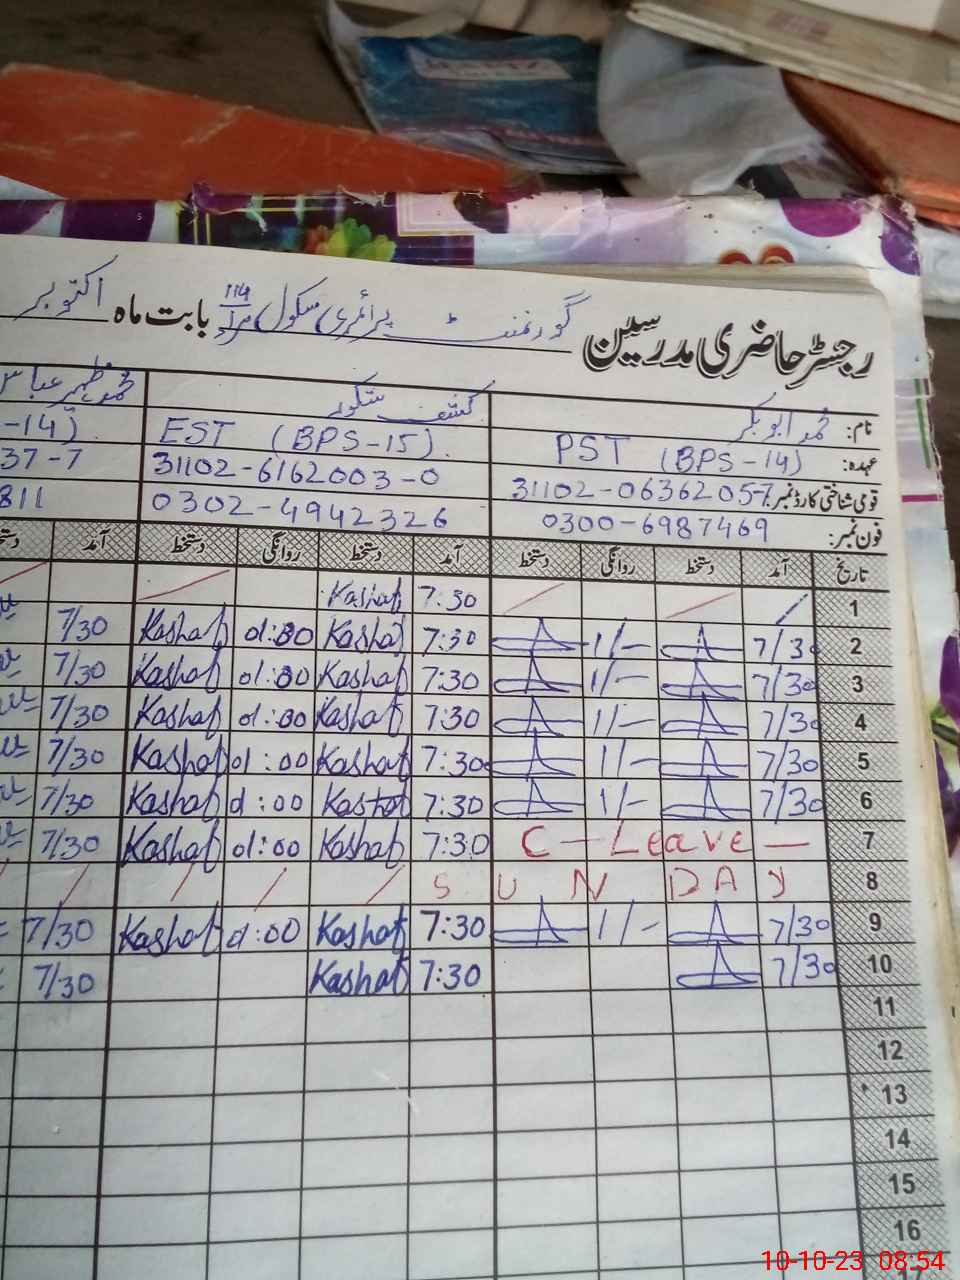 رجسٹر حاضری مدرسین گورنمنٹ پرائمری سکول 114 مراد بابت ماہ اکتوبر
نام: محمد ابوبکر کشف محمد ظہیر عباس
عہدہ: PST (BPS-14) EST (BPS-15) -14)
قومی شناختی کارڈ نمبر: 31102-0636205-7 31102-6162003-0 37-7
فون نمبر: 0300-6987469 0302-4942326 811
تاریخ آمد دستخط روانگی دستخط آمد دستخط روانگی دستخط آمد دستخط
1 7:30 Kashaf
2 7/30 1/- 7:30 Kashaf 01:00 Kashaf 7/30
3 7/30 1/- 7:30 Kashaf 01:00 Kashaf 7/30
4 7/30 1/- 7:30 Kashaf 01:00 Kashaf 7/30
5 7/30 1/- 7:30 Kashaf 01:00 Kashaf 7/30
6 7/30 1/- 7:30 Kashaf 01:00 Kashaf 7/30
7 C-Leave- 7:30 Kashaf 01:00 Kashaf 7/30
8 SUNDAY
9 7/30 1/- 7:30 Kashaf 01:00 Kashaf 7/30
10 7/30 7:30 Kashaf 7/30
11
12
13
14
15
16
17
10-10-23 08:54